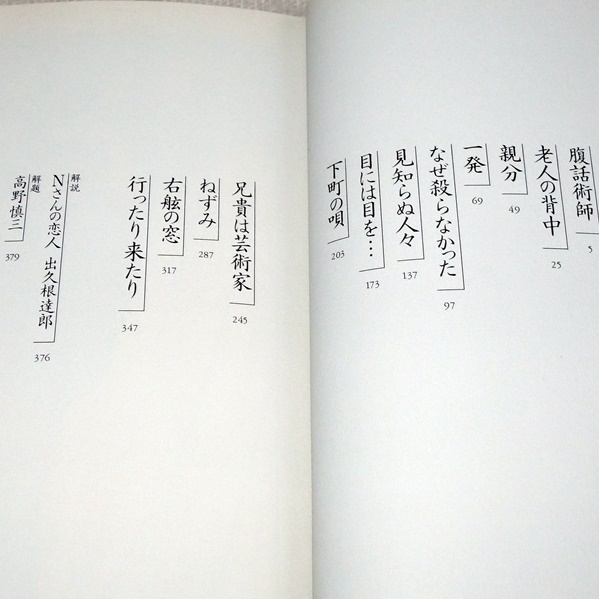 腹話術師
5
老人の背中
25
親分
49
一発
69
なぜ殺らなかった
97
見知らぬ人々
137
目には目を…
173
下町の唄
203
兄貴は芸術家
245
ねずみ
287
右舷の窓
317
行ったり来たり
347
解説
Nさんの恋人 出久根達郎
376
解題
高野慎三
379